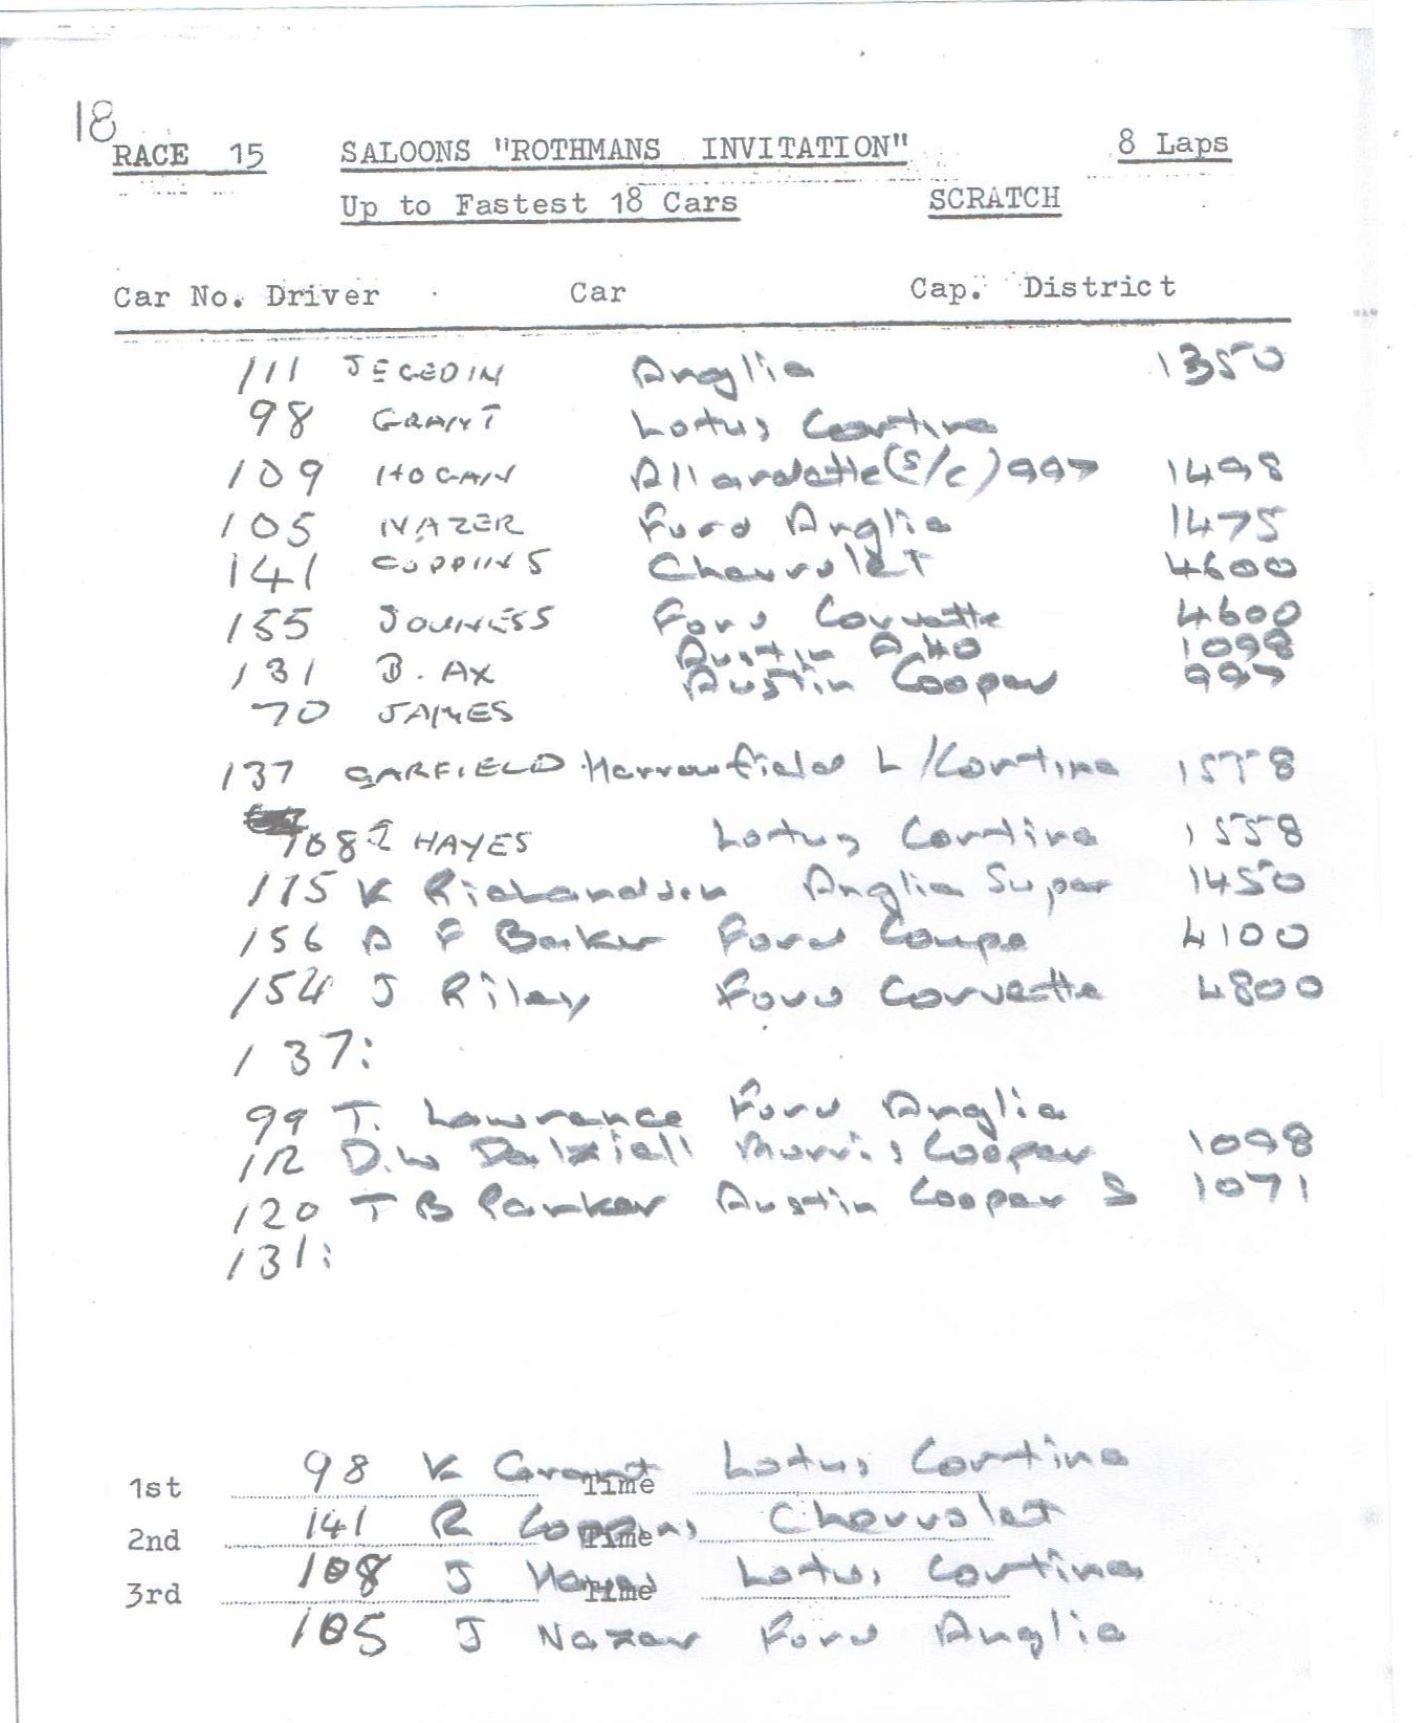 18
RACE 15 SALOONS "ROTHMANS INVITATION" 8 Laps
Up to Fastest 18 Cars SCRATCH
Car No. Driver Car Cap. District
111 JEGEDIN Anglia 1350
98 GRANT Lotus Cortina
109 HOGAN Allardette (S/C) 997 1498
105 NAZER Ford Anglia 1475
141 COPPINS Chevrolet 4600
155 JOUNESS Ford Corvette 4600
Austin A40 1098
131 B. AX Austin Cooper 997
70 JAMES
137 GARFIELD Harrowfield L/Cortina 1558
108 HAYES Lotus Cortina 1558
115 K Richardson Anglia Super 1450
156 A F Barker Ford Coupe 4100
154 J Riley Ford Corvette 4800
137:
99 T. Lawrence Ford Anglia
112 D.W Dalziell Morris Cooper 1098
120 T B Parker Austin Cooper S 1071
131:
1st 98 K Grant Time Lotus Cortina
2nd 141 R Coppins Time Chevrolet
3rd 108 J Hayes Time Lotus Cortina
105 J Nazer Ford Anglia